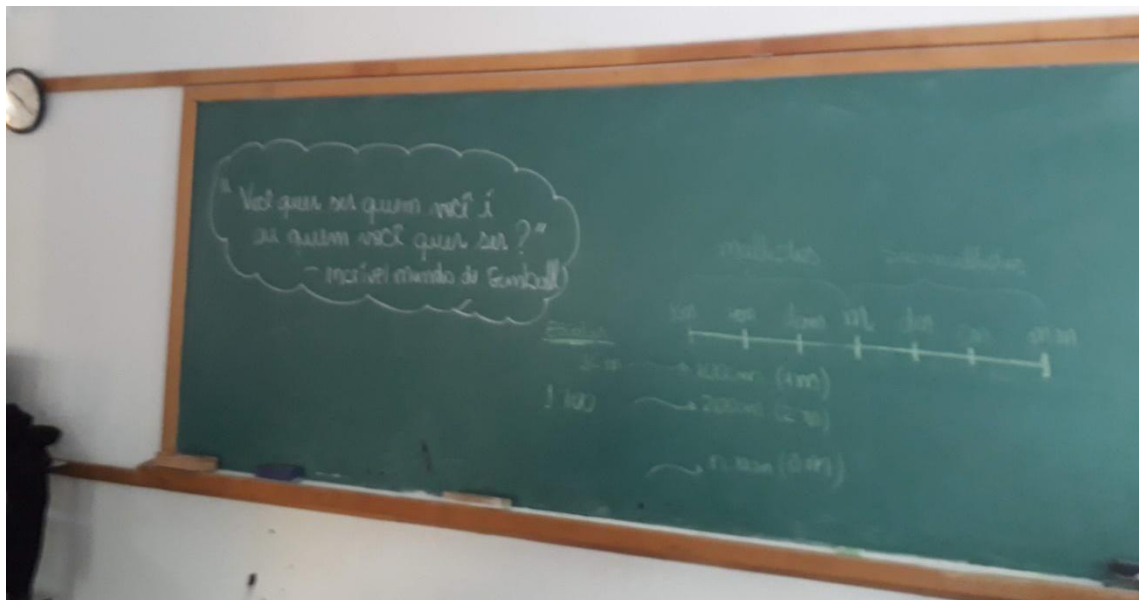 "Você quer ser quem você é
ou quem você quer ser?"
- Incrível mundo de Gumball
múltiplos
Submúltiplos
km
dam m dm mm
Escalas
100cm (1m)
1:100
200cm (2m)